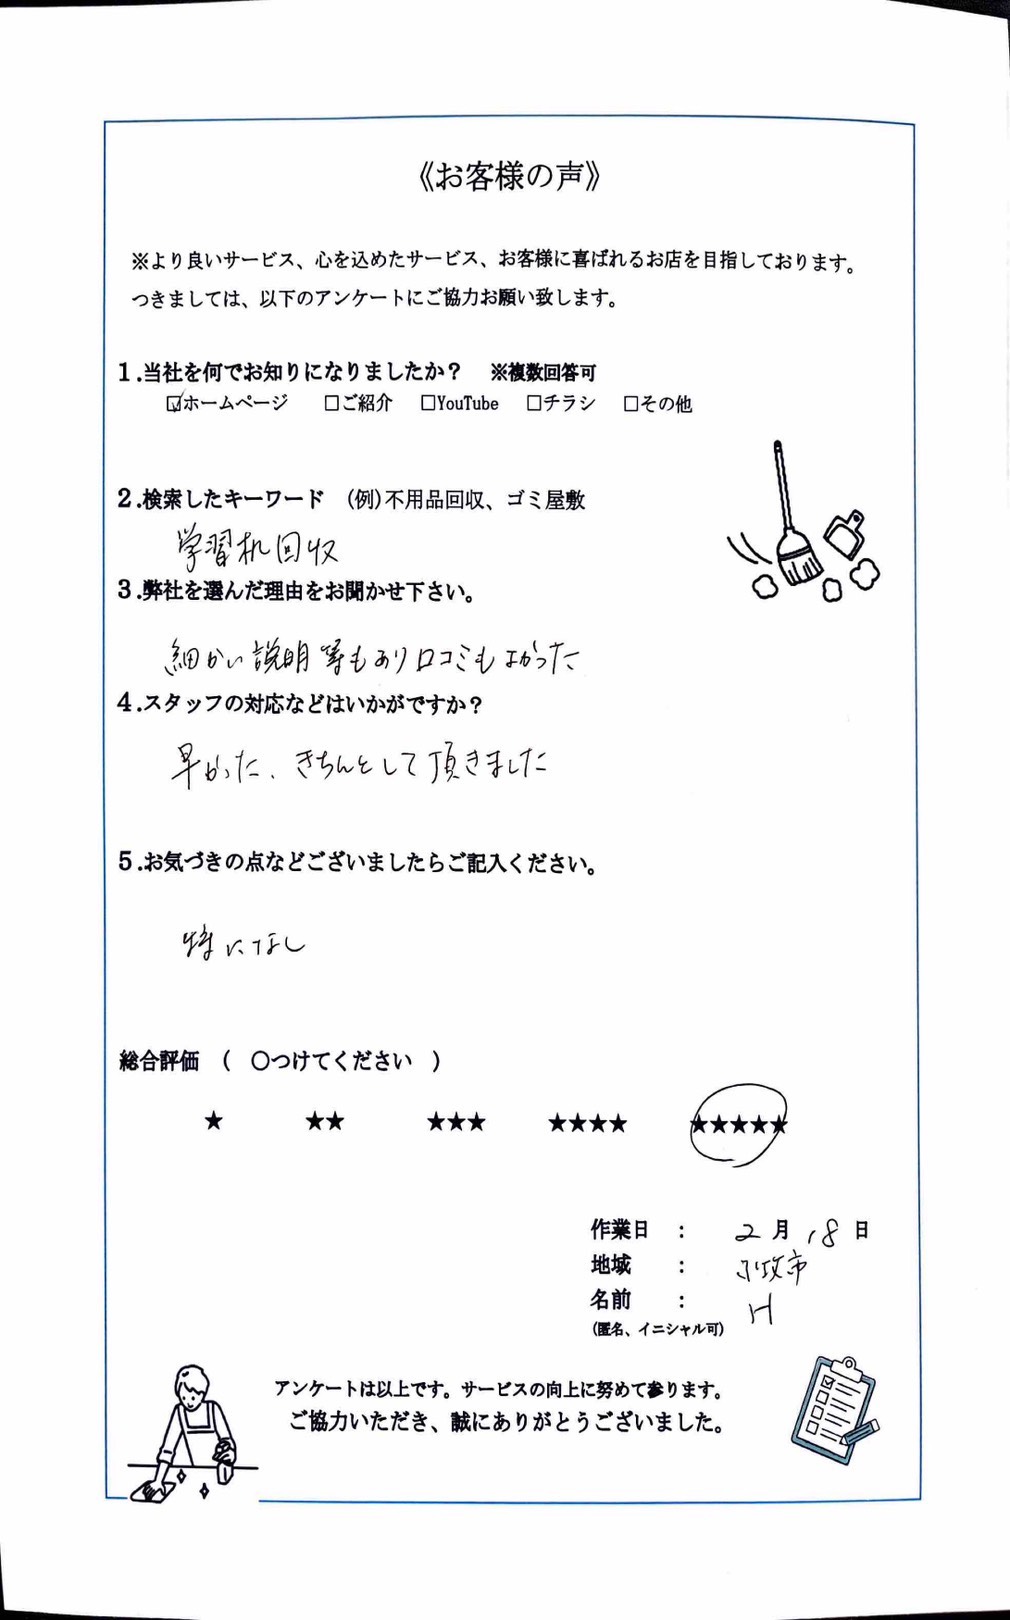 《お客様の声》
※より良いサービス、心を込めたサービス、お客様に喜ばれるお店を目指しております。
つきましては、以下のアンケートにご協力お願い致します。
1.当社を何でお知りになりましたか？　※複数回答可
☑ホームページ　□ご紹介　□YouTube　□チラシ　□その他
2.検索したキーワード　(例)不用品回収、ゴミ屋敷
学習机回収
3.弊社を選んだ理由をお聞かせ下さい。
細かい説明等もあり口コミもよかった
4.スタッフの対応などはいかがですか？
早かった、きちんとして頂きました
5.お気づきの点などございましたらご記入ください。
特になし
総合評価　(　○つけてください　)
★　★★　★★★　★★★★　★★★★★
作業日　：　2月18日
地域　：　小牧市
名前　：　H
(匿名、イニシャル可)
アンケートは以上です。サービスの向上に努めて参ります。
ご協力いただき、誠にありがとうございました。